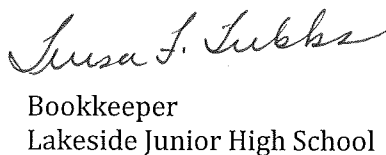 Teresa F. Tubbs
Bookkeeper
Lakeside Junior High School